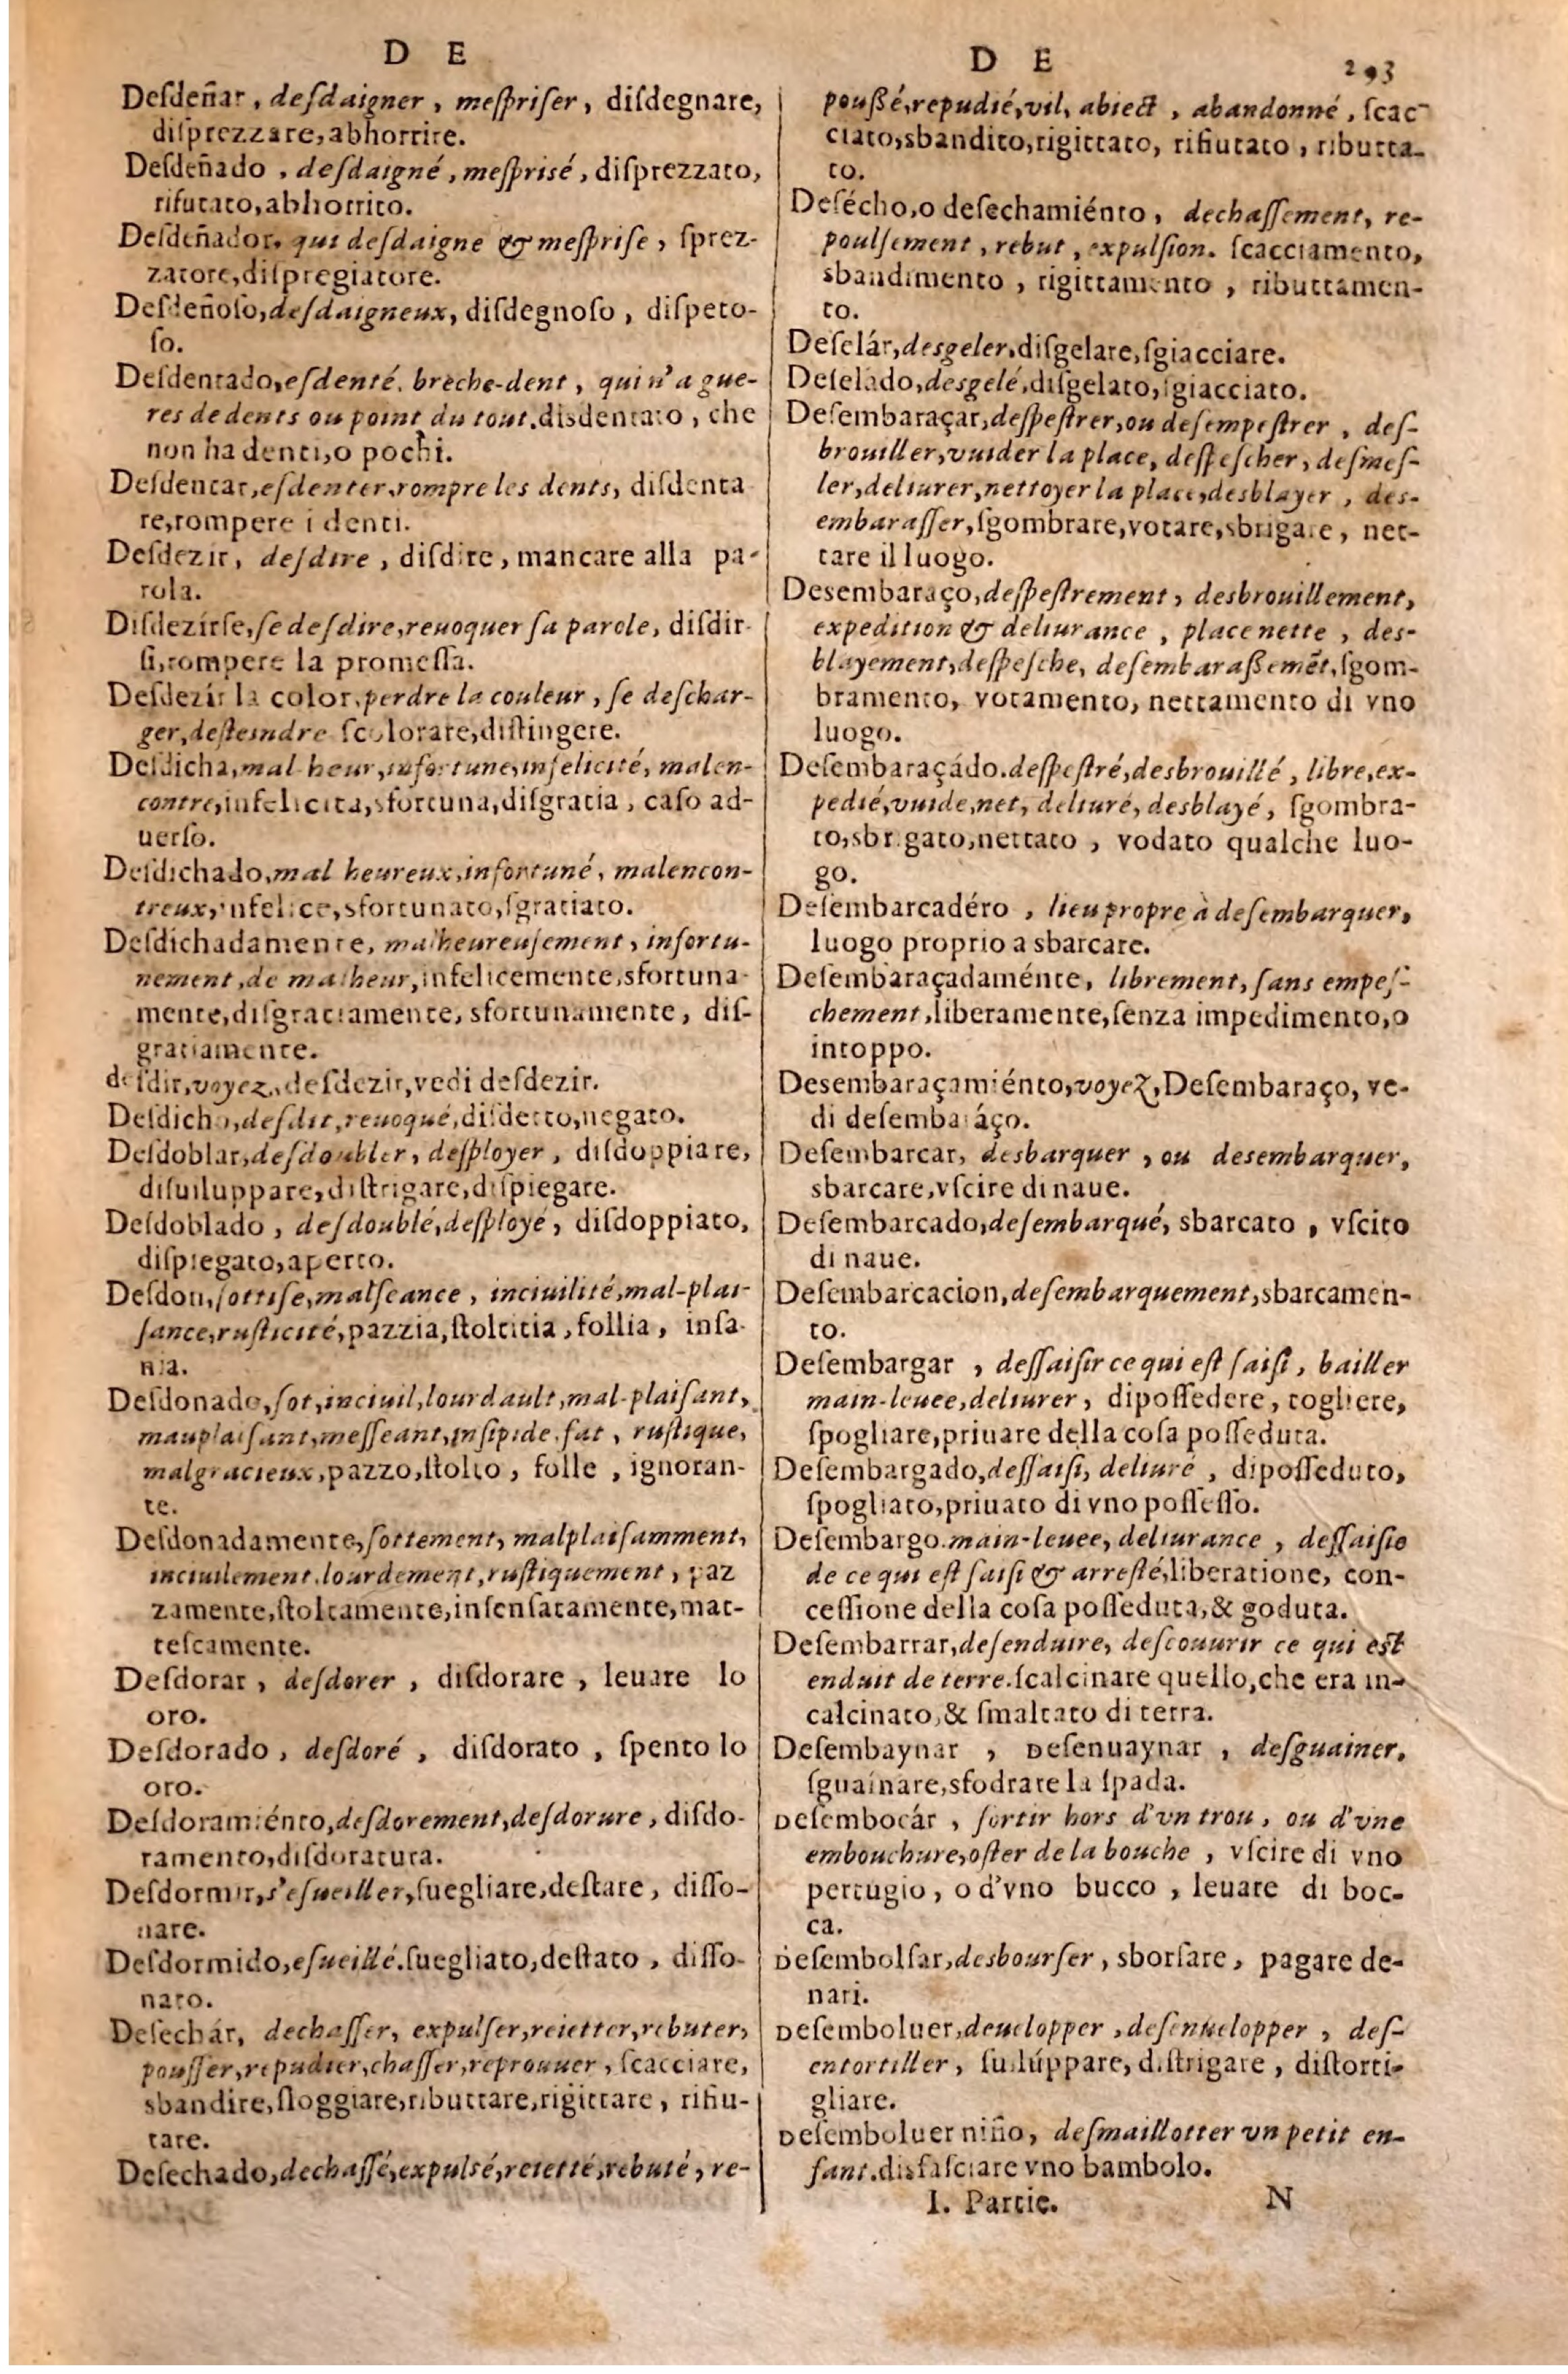 D E
Deſdeñar, deſdaigner, meſpriſer, diſdegnare,
diſprezzare, abhorrire.
Deſdeñado, deſdaigné, meſprisé, diſprezzato,
rifutato, abhorrito.
Deſdeñador, qui deſdaigne & meſpriſe, ſprez-
zatore, diſpregiatore.
Deſdeñoſo, deſdaigneux, diſdegnoſo, diſpeto-
ſo.
Deſdentado, eſdenté, breche-dent, qui n'a gue-
res de dents ou point du tout. disdentato, che
non ha denti, o pochi.
Deſdentar, eſdenter, rompre les dents, diſdenta
re, rompere i denti.
Deſdezir, deſdire, diſdire, mancare alla pa-
rola.
Diſdezirſe, ſe deſdire, reuoquer ſa parole, diſdir-
ſi, rompere la promeſſa.
Deſdezir la color, perdre la couleur, ſe deſchar-
ger, deſteindre ſcolorare, diſtingere.
Deſdicha, mal heur, infortune, infelicité, malen-
contre, infelicita, sfortuna, diſgratia, caſo ad-
uerſo.
Deſdichado, mal heureux, infortuné, malencon-
treux, infelice, sfortunato, ſgratiato.
Deſdichadamente, malheureuſement, infortu-
nement, de malheur, infelicemente, sfortuna-
mente, diſgratiamente, sfortunamente, diſ-
gratiamente.
deſdir, voyez, deſdezir, vedi deſdezir.
Deſdicho, deſdit, reuoqué, diſdetto, negato.
Deſdoblar, deſdoubler, deſployer, diſdoppiare,
diſuiluppare, diſtrigare, diſpiegare.
Deſdoblado, deſdoublé, deſployé, diſdoppiato,
diſpiegato, aperto.
Deſdon, ſottiſe, malſeance, inciuilité, mal-plai-
ſance, ruſticité, pazzia, ſtoltitia, follia, inſa-
nia.
Deſdonado, ſot, inciuil, lourdault, mal-plaiſant,
mauplaiſant, meſſeant, inſipide, fat, ruſtique,
malgracieux, pazzo, ſtolto, folle, ignoran-
te.
Deſdonadamente, ſottement, malplaiſamment,
inciuilement, lourdement, ruſtiquement, paz
zamente, ſtoltamente, inſenſatamente, mat-
teſcamente.
Deſdorar, deſdorer, diſdorare, leuare lo
oro.
Deſdorado, deſdoré, diſdorato, ſpento lo
oro.
Deſdoramiénto, deſdorement, deſdorure, diſdo-
ramento, diſdoratura.
Deſdormir, s'eſueiller, ſuegliare, deſtare, diſſo-
nare.
Deſdormido, eſueillé. ſuegliato, deſtato, diſſo-
nato.
Deſechár, dechaſſer, expulſer, reietter, rebuter,
pouſſer, repudier, chaſſer, reprouuer, ſcacciare,
sbandire, ſloggiare, ributtare, rigittare, rifiu-
tare.
Deſechado, dechaſſé, expulsé, reietté, rebuté, re-
D E 293
poußé, repudié, vil, abiect, abandonné, ſcac-
ciato, sbandito, rigittato, rifiutato, ributta-
to.
Deſécho, o deſechamiénto, dechaſſement, re-
poulſement, rebut, expulſion. ſcacciamento,
sbandimento, rigittamento, ributtamen-
to.
Deſelár, desgeler, diſgelare, ſgiacciare.
Deſelado, desgelé, diſgelato, ſgiacciato.
Deſembaraçar, deſpeſtrer, ou deſempeſtrer, deſ-
brouiller, vuider la place, deſpeſcher, deſmeſ-
ler, deliurer, nettoyer la place, desblayer, des-
embaraſſer, ſgombrare, votare, sbrigare, net-
tare il luogo.
Desembaraço, deſpeſtrement, desbrouillement,
expedition & deliurance, place nette, des-
blayement, deſpeſche, deſembaraßemẽt, ſgom-
bramento, votamento, nettamento di vno
luogo.
Deſembaraçádo. deſpeſtré, desbrouillé, libre, ex-
pedié, vuide, net, deliuré, desblayé, ſgombra-
to, sbrigato, nettato, vodato qualche luo-
go.
Deſembarcadéro, lieu propre à deſembarquer,
luogo proprio a sbarcare.
Deſembaraçadaménte, librement, ſans empeſ-
chement, liberamente, ſenza impedimento, o
intoppo.
Desembaraçamiénto, voyez, Deſembaraço, ve-
di deſembaráço.
Deſembarcar, desbarquer, ou desembarquer,
sbarcare, vſcire di naue.
Deſembarcado, deſembarqué, sbarcato, vſcito
di naue.
Deſembarcacion, deſembarquement, sbarcamen-
to.
Deſembargar, deſſaiſir ce qui eſt ſaiſi, bailler
main-leuee, deliurer, dipoſſedere, togliere,
ſpogliare, priuare della coſa poſſeduta.
Deſembargado, deſſaiſi, deliuré, dipoſſeduto,
ſpogliato, priuato di vno poſſeſſo.
Deſembargo. main-leuee, deliurance, deſſaiſie
de ce qui eſt ſaiſi & arreſté, liberatione, con-
ceſſione della coſa poſſeduta, & goduta.
Deſembarrar, deſenduire, deſcouurir ce qui eſt
enduit de terre. ſcalcinare quello, che era in-
calcinato, & ſmaltato di terra.
Deſembaynar, Deſenuaynar, deſguainer,
ſguainare, sfodrare la ſpada.
Deſembocár, ſortir hors d'vn trou, ou d'vne
embouchure, oſter de la bouche, vſcire di vno
pertugio, o d'vno bucco, leuare di boc-
ca.
Deſembolſar, desbourſer, sborſare, pagare de-
nari.
Deſemboluer, deuelopper, deſenuelopper, deſ-
entortiller, ſuilúppare, diſtrigare, diſtorti-
gliare.
Deſemboluer niño, deſmaillotter vn petit en-
fant. disfaſciare vno bambolo.
I. Partie. N